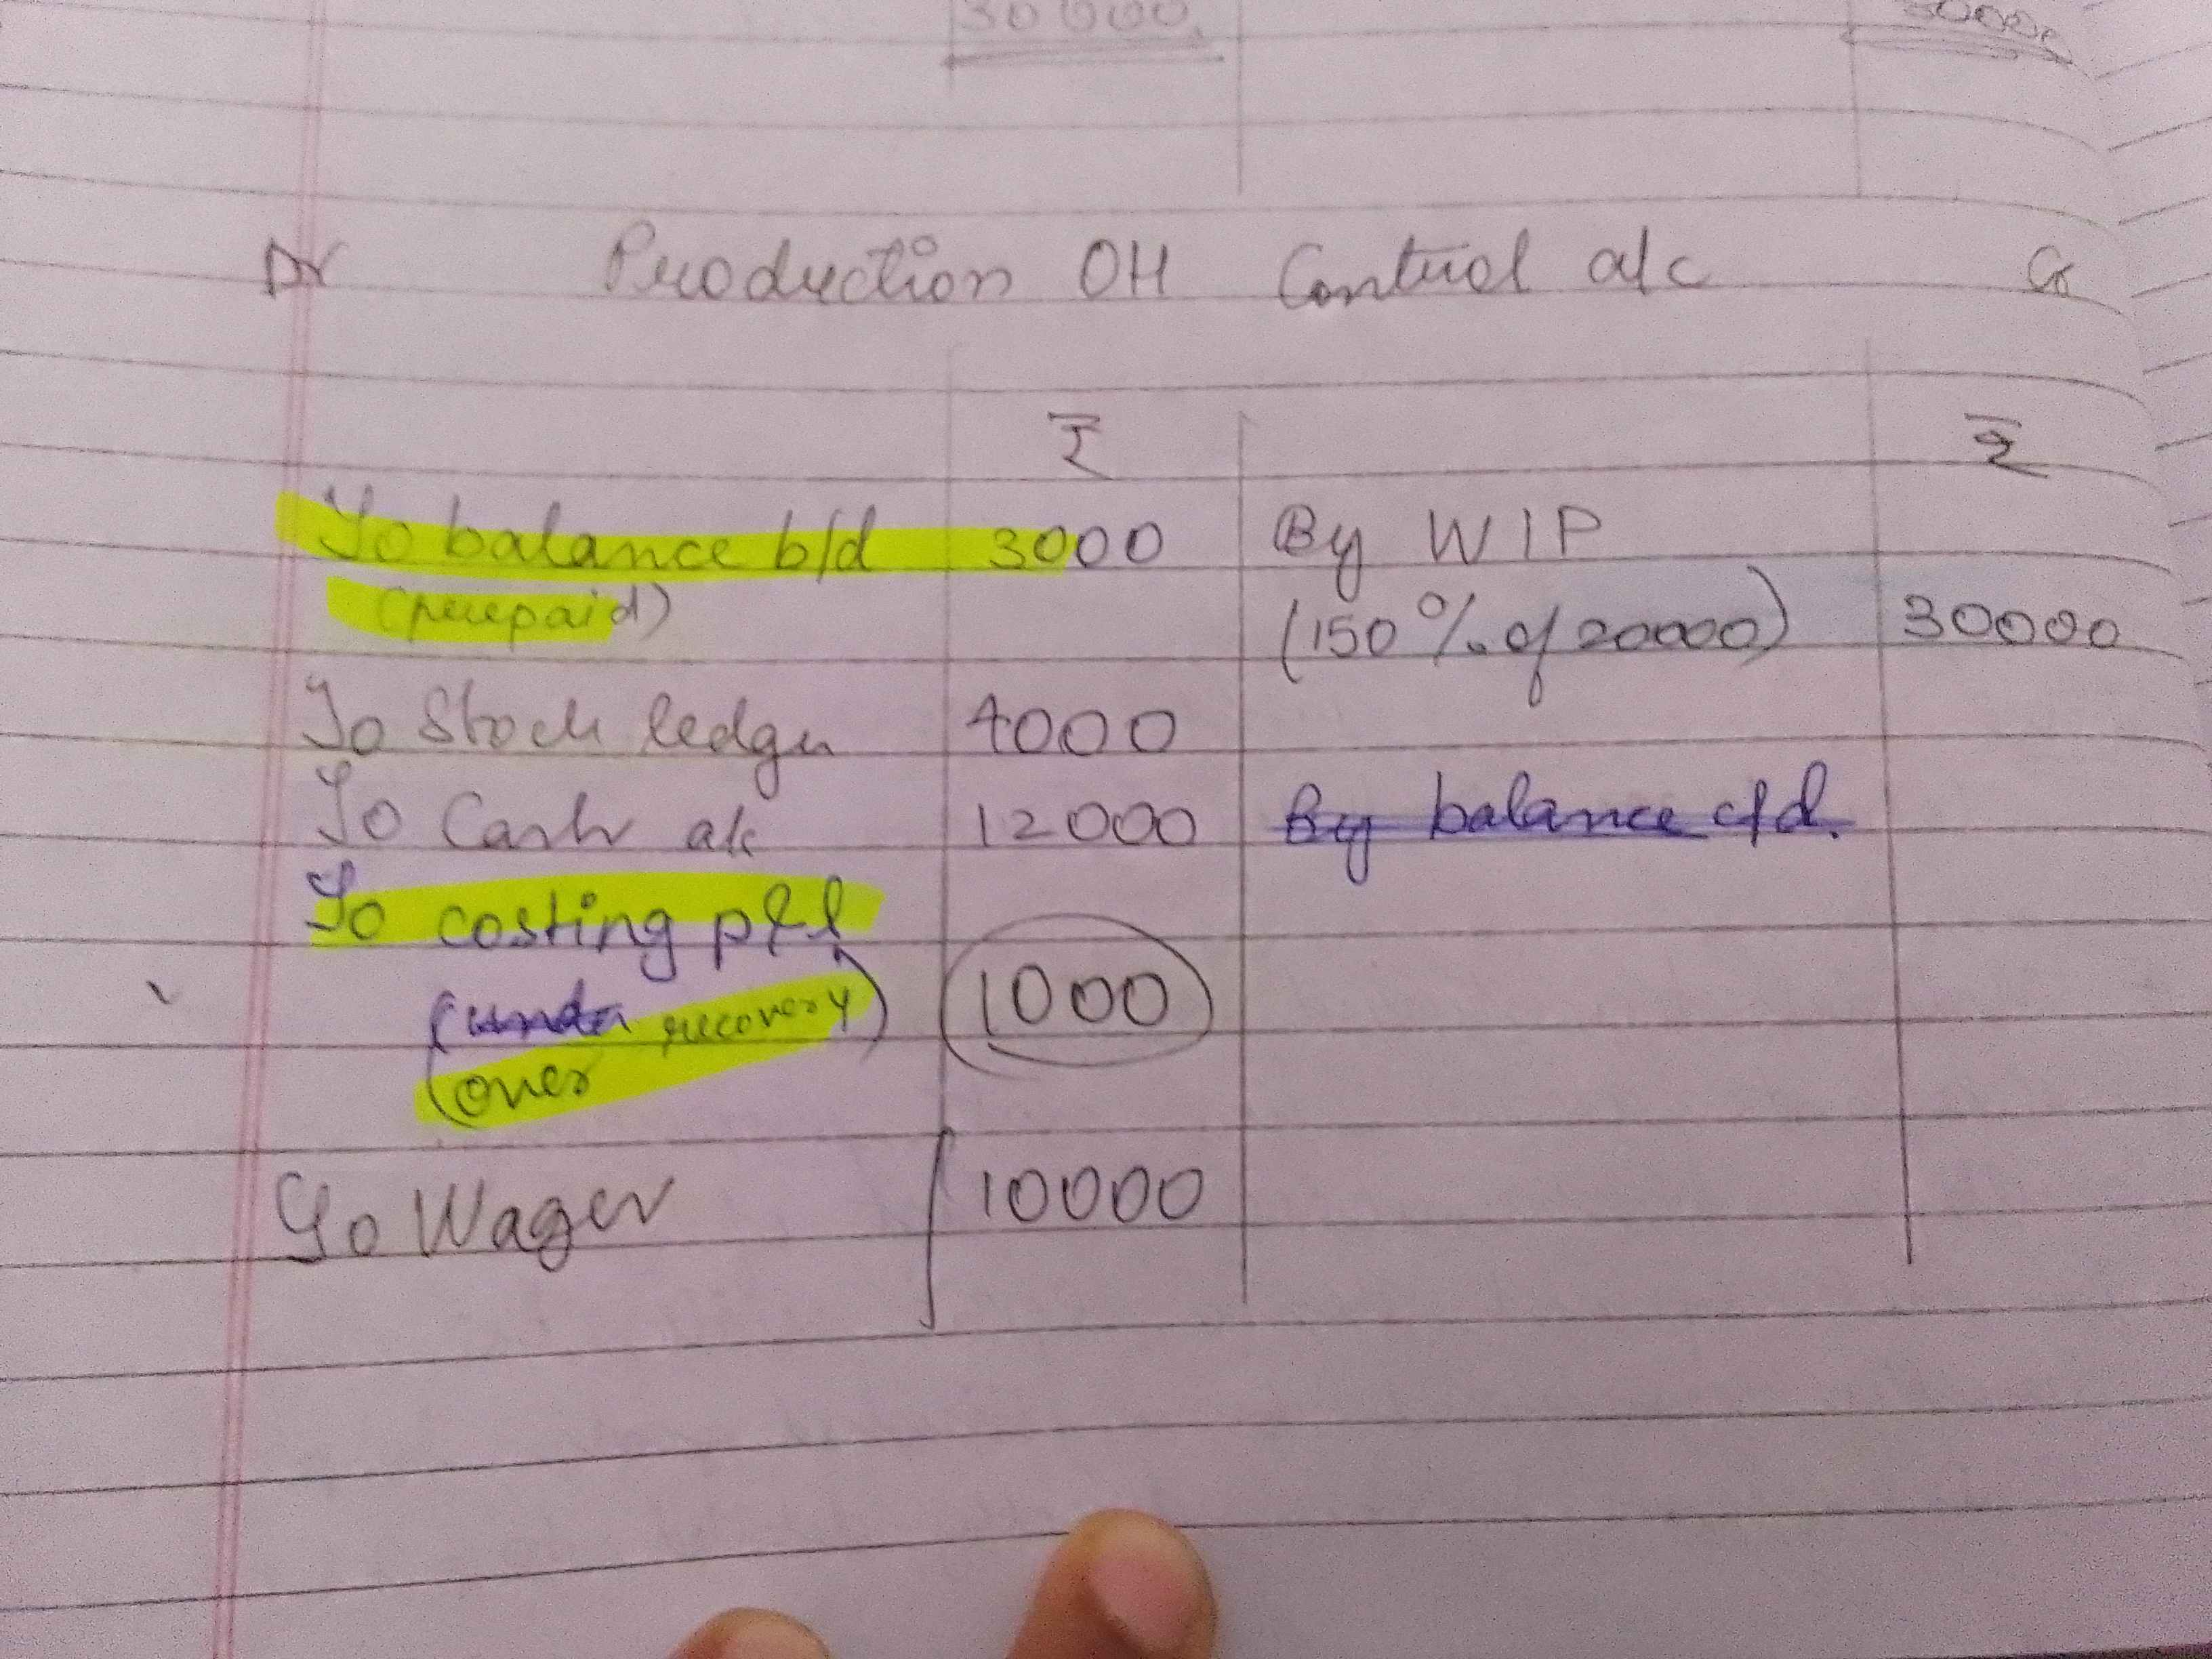 30000
30000
Dr Production OH Control a/c Cr
₹ ₹
To balance b/d 3000 By WIP
(prepaid) (150% of 20000) 30000
To Stock ledger 4000
To Cash a/c 12000 By balance c/d.
To costing p&l
(under recovery) 1000
(over
To Wages 10000